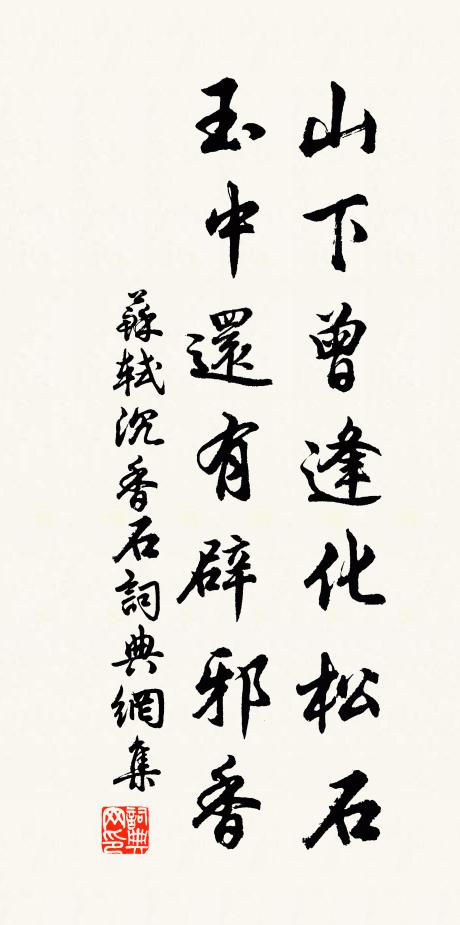 山下曾逢化松石
玉中還有辟邪香
蘇軾沉香石詞典網集
詞典网印